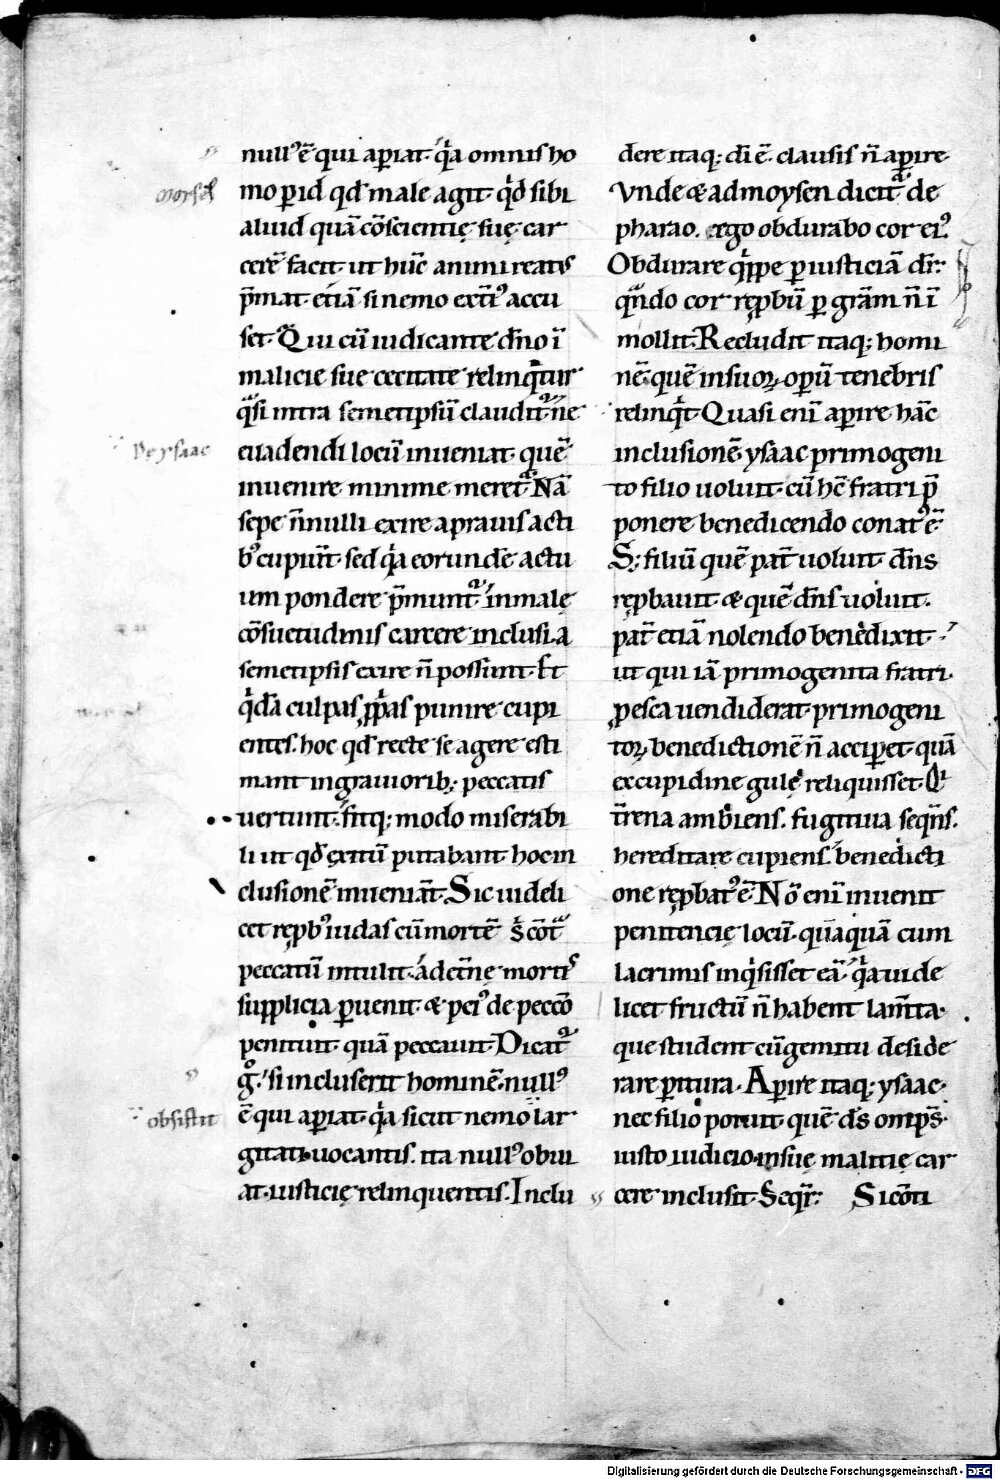 null᾽ ē qui aꝑiat· q̇a omnis ho
mo ꝑ id qd̄ male agit· qd̄ sibi
aliud quā cōscientię suę car
cerē facit· ut hūc animi reatꝰ
p̄mat· etiā si nemo ext̄iꝰ accu
set· Qui cū iudicante dn̄o ī
malicie sue cecitate relinq̇tur
q̄si intra semetipsū claudit᷑· ne
euadendi locū inueniat· quē
inuenire minime meret᷑· Nā
sepe n̄nulli exire a prauis acti
bꝰ cupiūt· sed q̇a eorunde actu
um pondere p̄munt᷑· in malę
cōsuetudinis carcere inclusi· a
semetipsis exire n̄ possunt· Et
q̇dā culpas ꝓprias punire cupi
entes· hoc qd̄ recte se agere esti
mant in grauiorib; peccatis
uertunt· fitq; modo miserabi
li ut qd̄ exitū putabant hoc in
clusionē inueniāt· Sic uideli
cet reꝓbꝰ iudas cū mortē s̄ cōt᷑
peccatū intulit· ad et̄nę mortis
supplicia ꝑuenit· & peiꝰ de peccō
penituit· quā peccauit· Dicat᷑
g̊· si incluserit hominē· nullꝰ
ē qui aꝑiat· q̇a sicut nemo lar
gitati uocantis· ita nullꝰ obui
at· iusticię relinquentis· Inclu
dere itaq; dī ē· clausis n̄ aꝑire·
Vnde & ad moysen dicit᷑ de
pharao· ego obdurabo cor eiꝰ
Obdurare q̇ppe ꝑ iusticiā dr̄:
qn̄do cor reꝓbū ꝑ grām n̄ ī
mollit· Recludit itaq; homi
nē· quē in suoꝝ oꝑū tenebris
relinq̇t· Quasi enī aꝑire hāc
inclusionē ysaac primogeni
to filio uoluit· cū hē fratri p̄
ponere benedicendo conatꝰ ē
S; filiū quē pat̄ uoluit· dn̄s
reꝓbauit & quē dn̄s uoluit·
pat̄ etiā nolendo benedixit·
ut qui iā primogenita fratri·
ꝓ esca uendiderat· primogeni
toꝝ benedictionē n̄ acciꝑet· quā
ex cupidine gulę reliquisset· Qi
t̄rena ambiens· fugitiua seqn̄s·
hereditare cupiens· benedicti
one reꝓbatꝰ ē· Nō enī inuenit
penitencię locū· quāquā cum
lacrimis inq̇sisset eā· q̇a uide
licet fructū n̄ habent lam̄ta·
que student cū gemitu deside
rare ꝑitura· Aꝑire itaq; ysaac·
nec filio potuit· quē ds̄ omps̄·
iusto iudicio· in suę malitię car
cere inclusit· Seqr̄: Si cōti
De ysaac
obsistit
Digitalisierung gefördert durch die Deutsche Forschungsgemeinschaft - DFG